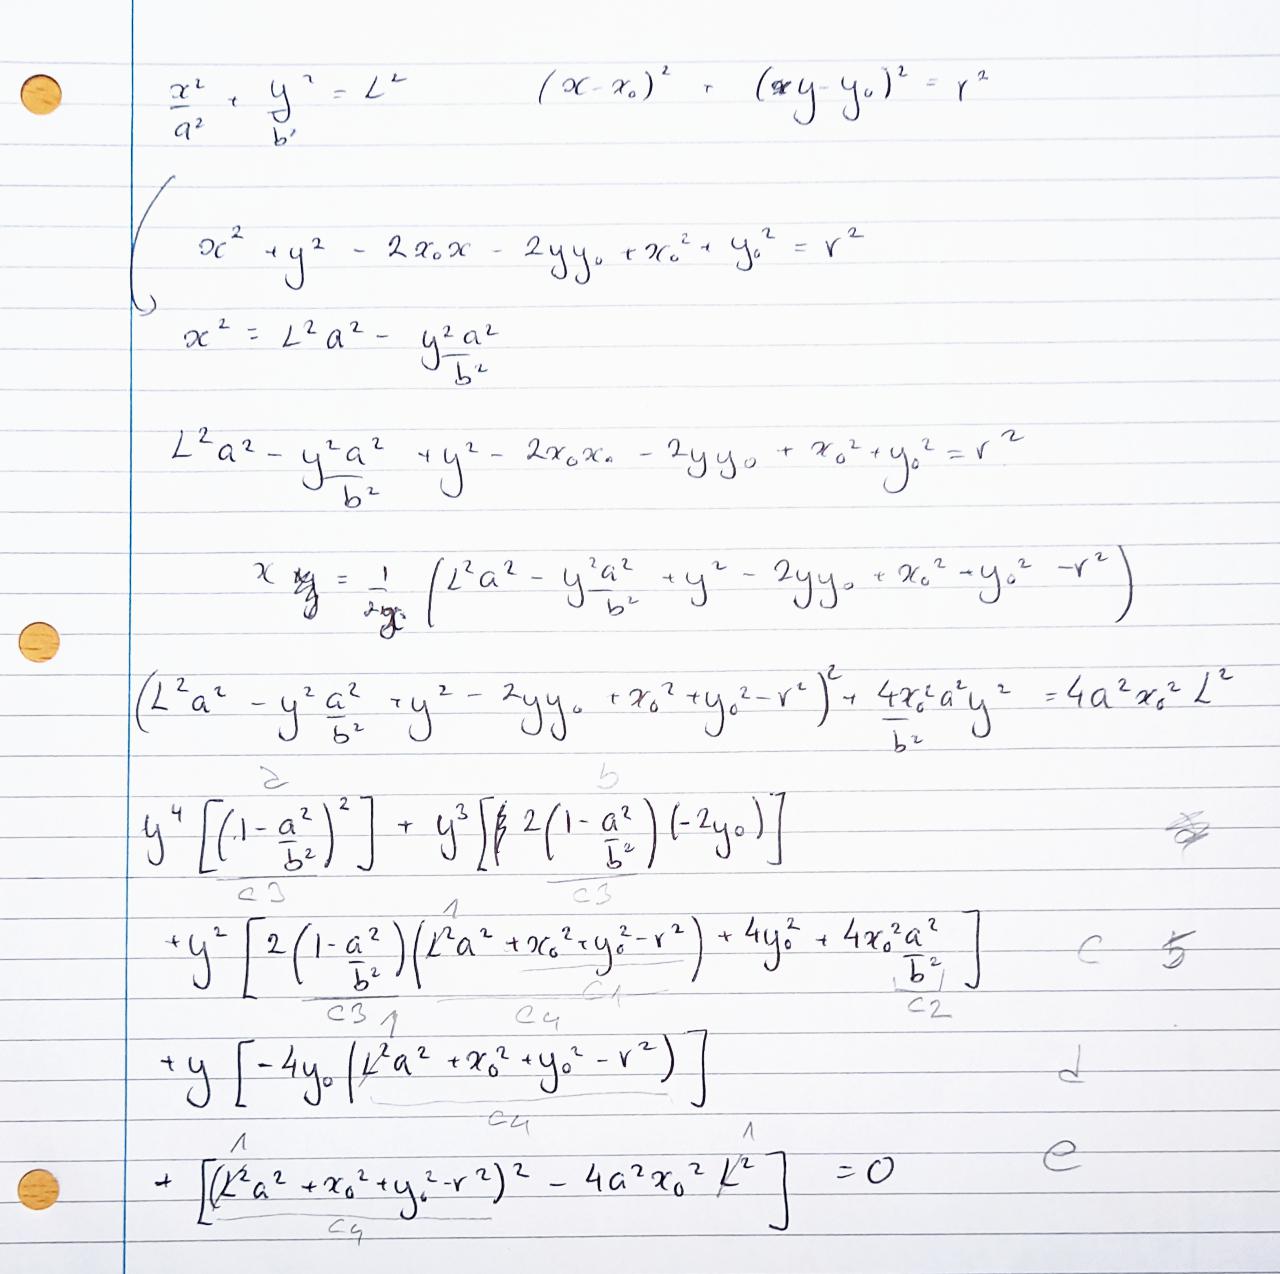 x²/a² + y²/b² = L² (x - x₀)² + (y - y₀)² = r²
x² + y² - 2x₀x - 2yy₀ + x₀² + y₀² = r²
x² = L²a² - y²a²/b²
L²a² - y²a²/b² + y² - 2x₀x - 2yy₀ + x₀² + y₀² = r²
x = 1/2x₀ (L²a² - y²a²/b² + y² - 2yy₀ + x₀² + y₀² - r²)
(L²a² - y² a²/b² + y² - 2yy₀ + x₀² + y₀² - r²)² + 4x₀²a²y²/b² = 4a²x₀²L²
a b
y⁴ [(1 - a²/b²)²] + y³ [2(1 - a²/b²)(-2y₀)]
c3 c3
1
+ y² [2(1 - a²/b²)(L²a² + x₀² + y₀² - r²) + 4y₀² + 4x₀² a²/b²] c 5
c3 c4 c1 c2
1
+ y [-4y₀ (L²a² + x₀² + y₀² - r²)] d
c4
1 1
+ [(L²a² + x₀² + y₀² - r²)² - 4a²x₀² L²] = 0 e
c4